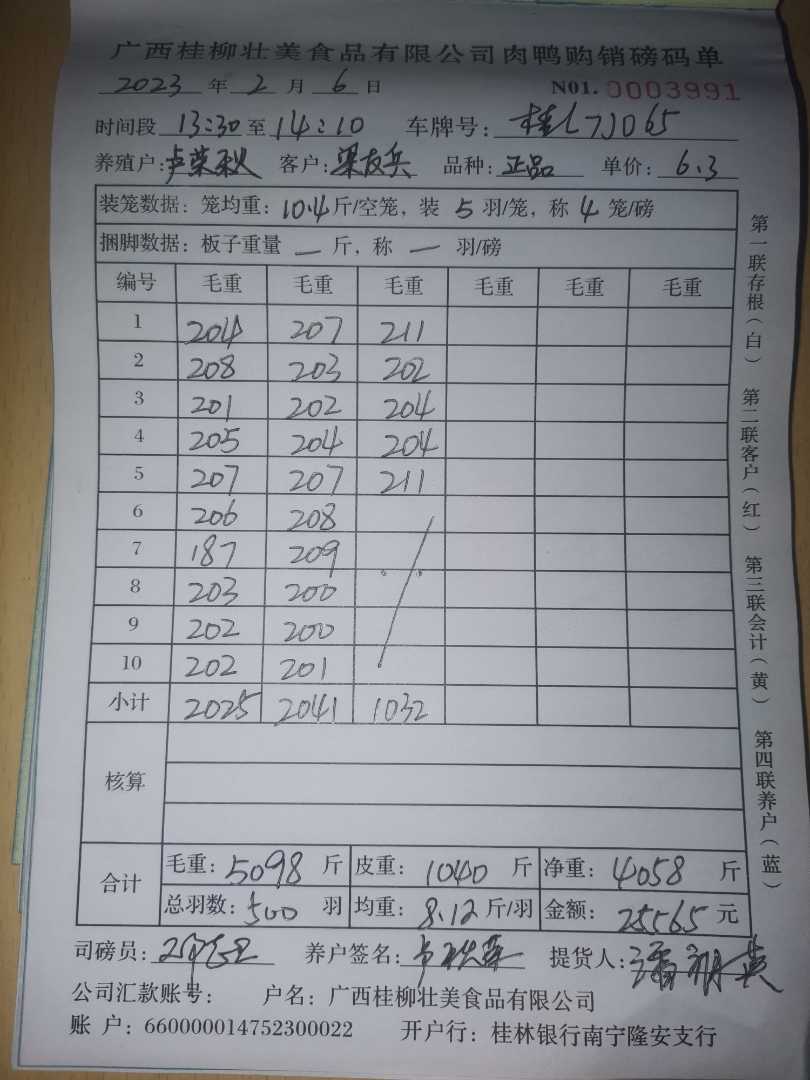 广西桂柳壮美食品有限公司肉鸭购销磅码单
2023 年 2 月 6 日 N01. 0003991
时间段 13:30 至 14:10 车牌号: 桂 065
养殖户: 客户: 梁友兵 品种: 正品 单价: 6.3
装笼数据: 笼均重: 10.4 斤/空笼, 装 5 羽/笼, 称 4 笼/磅
捆脚数据: 板子重量 — 斤, 称 — 羽/磅
编号 毛重 毛重 毛重 毛重 毛重 毛重
1 204 207 211
2 208 203 202
3 201 202 204
4 205 204 204
5 207 207 211
6 206 208
7 187 209
8 203 200
9 202 200
10 202 201
小计 2025 2041 1032
核算
合计 毛重: 5098 斤 皮重: 1040 斤 净重: 4058 斤
总羽数: 500 羽 均重: 8.12 斤/羽 金额: 25565 元
司磅员: 养户签名: 提货人:
公司汇款账号: 户名: 广西桂柳壮美食品有限公司
账 户: 660000014752300022 开户行: 桂林银行南宁隆安支行
第一联存根(白) 第二联客户(红) 第三联会计(黄) 第四联养户(蓝)